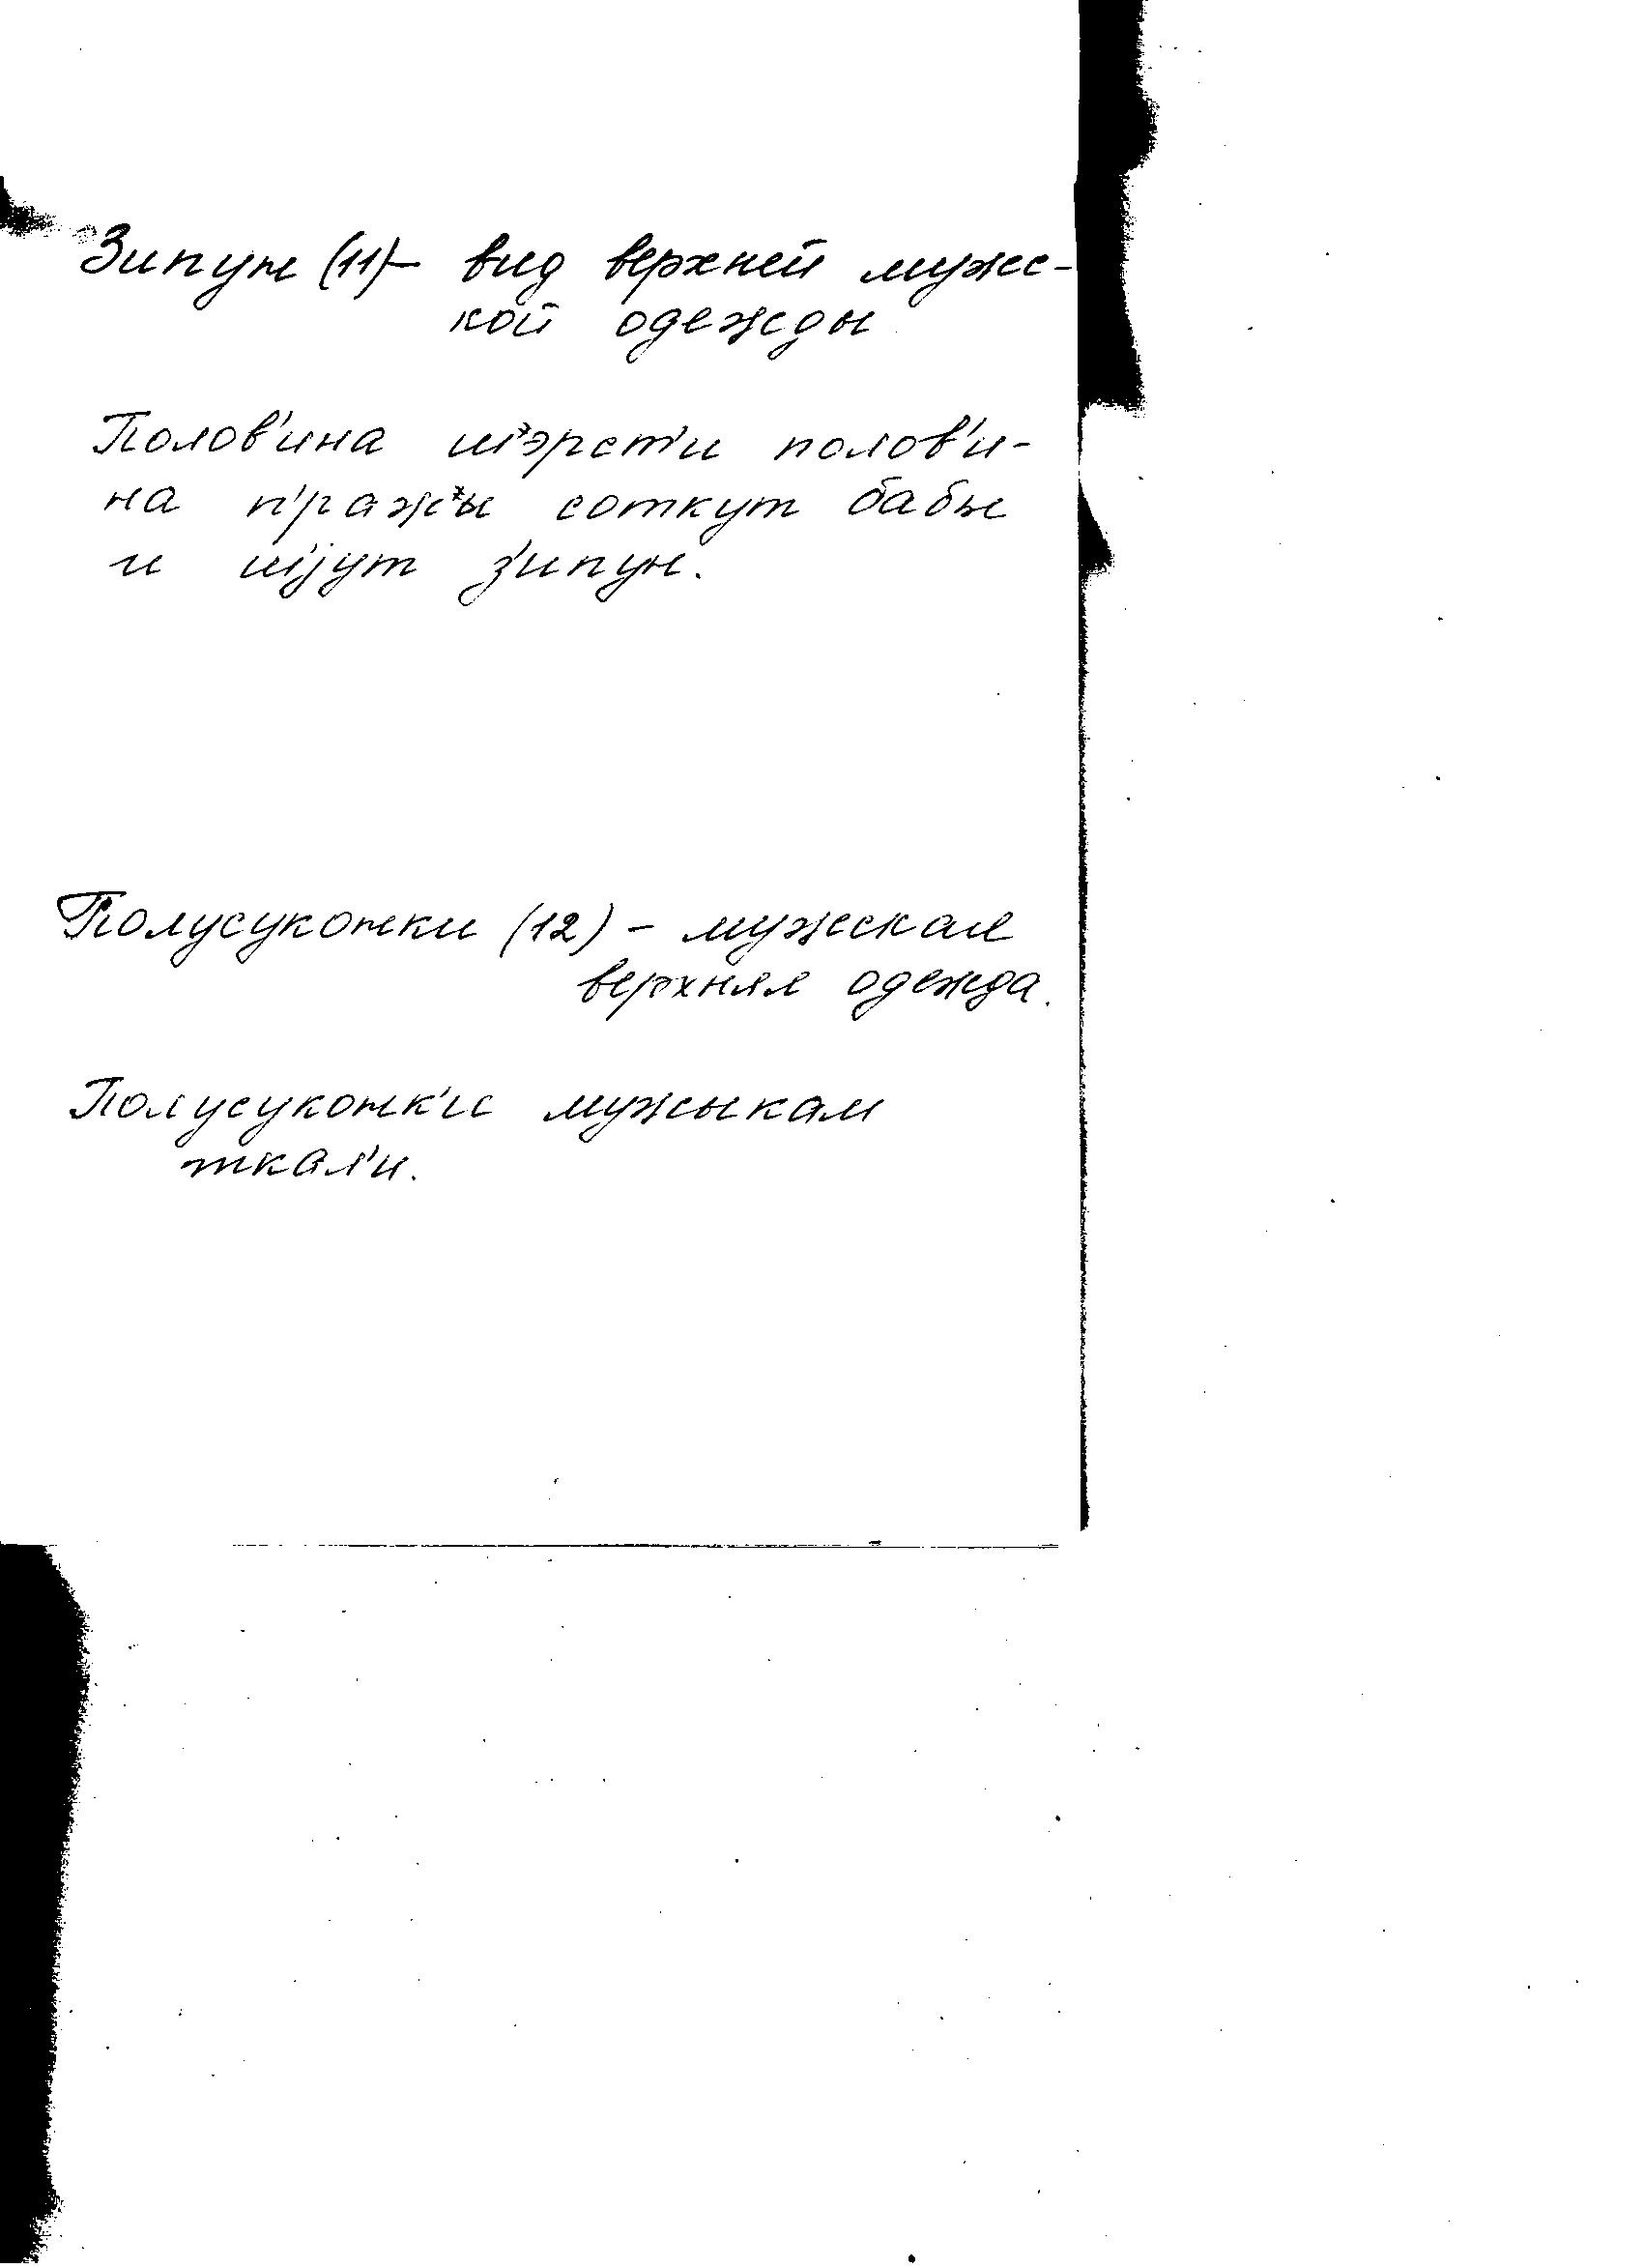 Зипун (11) – вид верхней мужс-
кой одежды
Полов'ина шэрст'и полов'и-
на п'ражы соткут бабы
и шjут з'ипун.
Полусуконки (12) – мужская
верхняя одежда.
Полусуконк'и мужыкам
ткал'и.